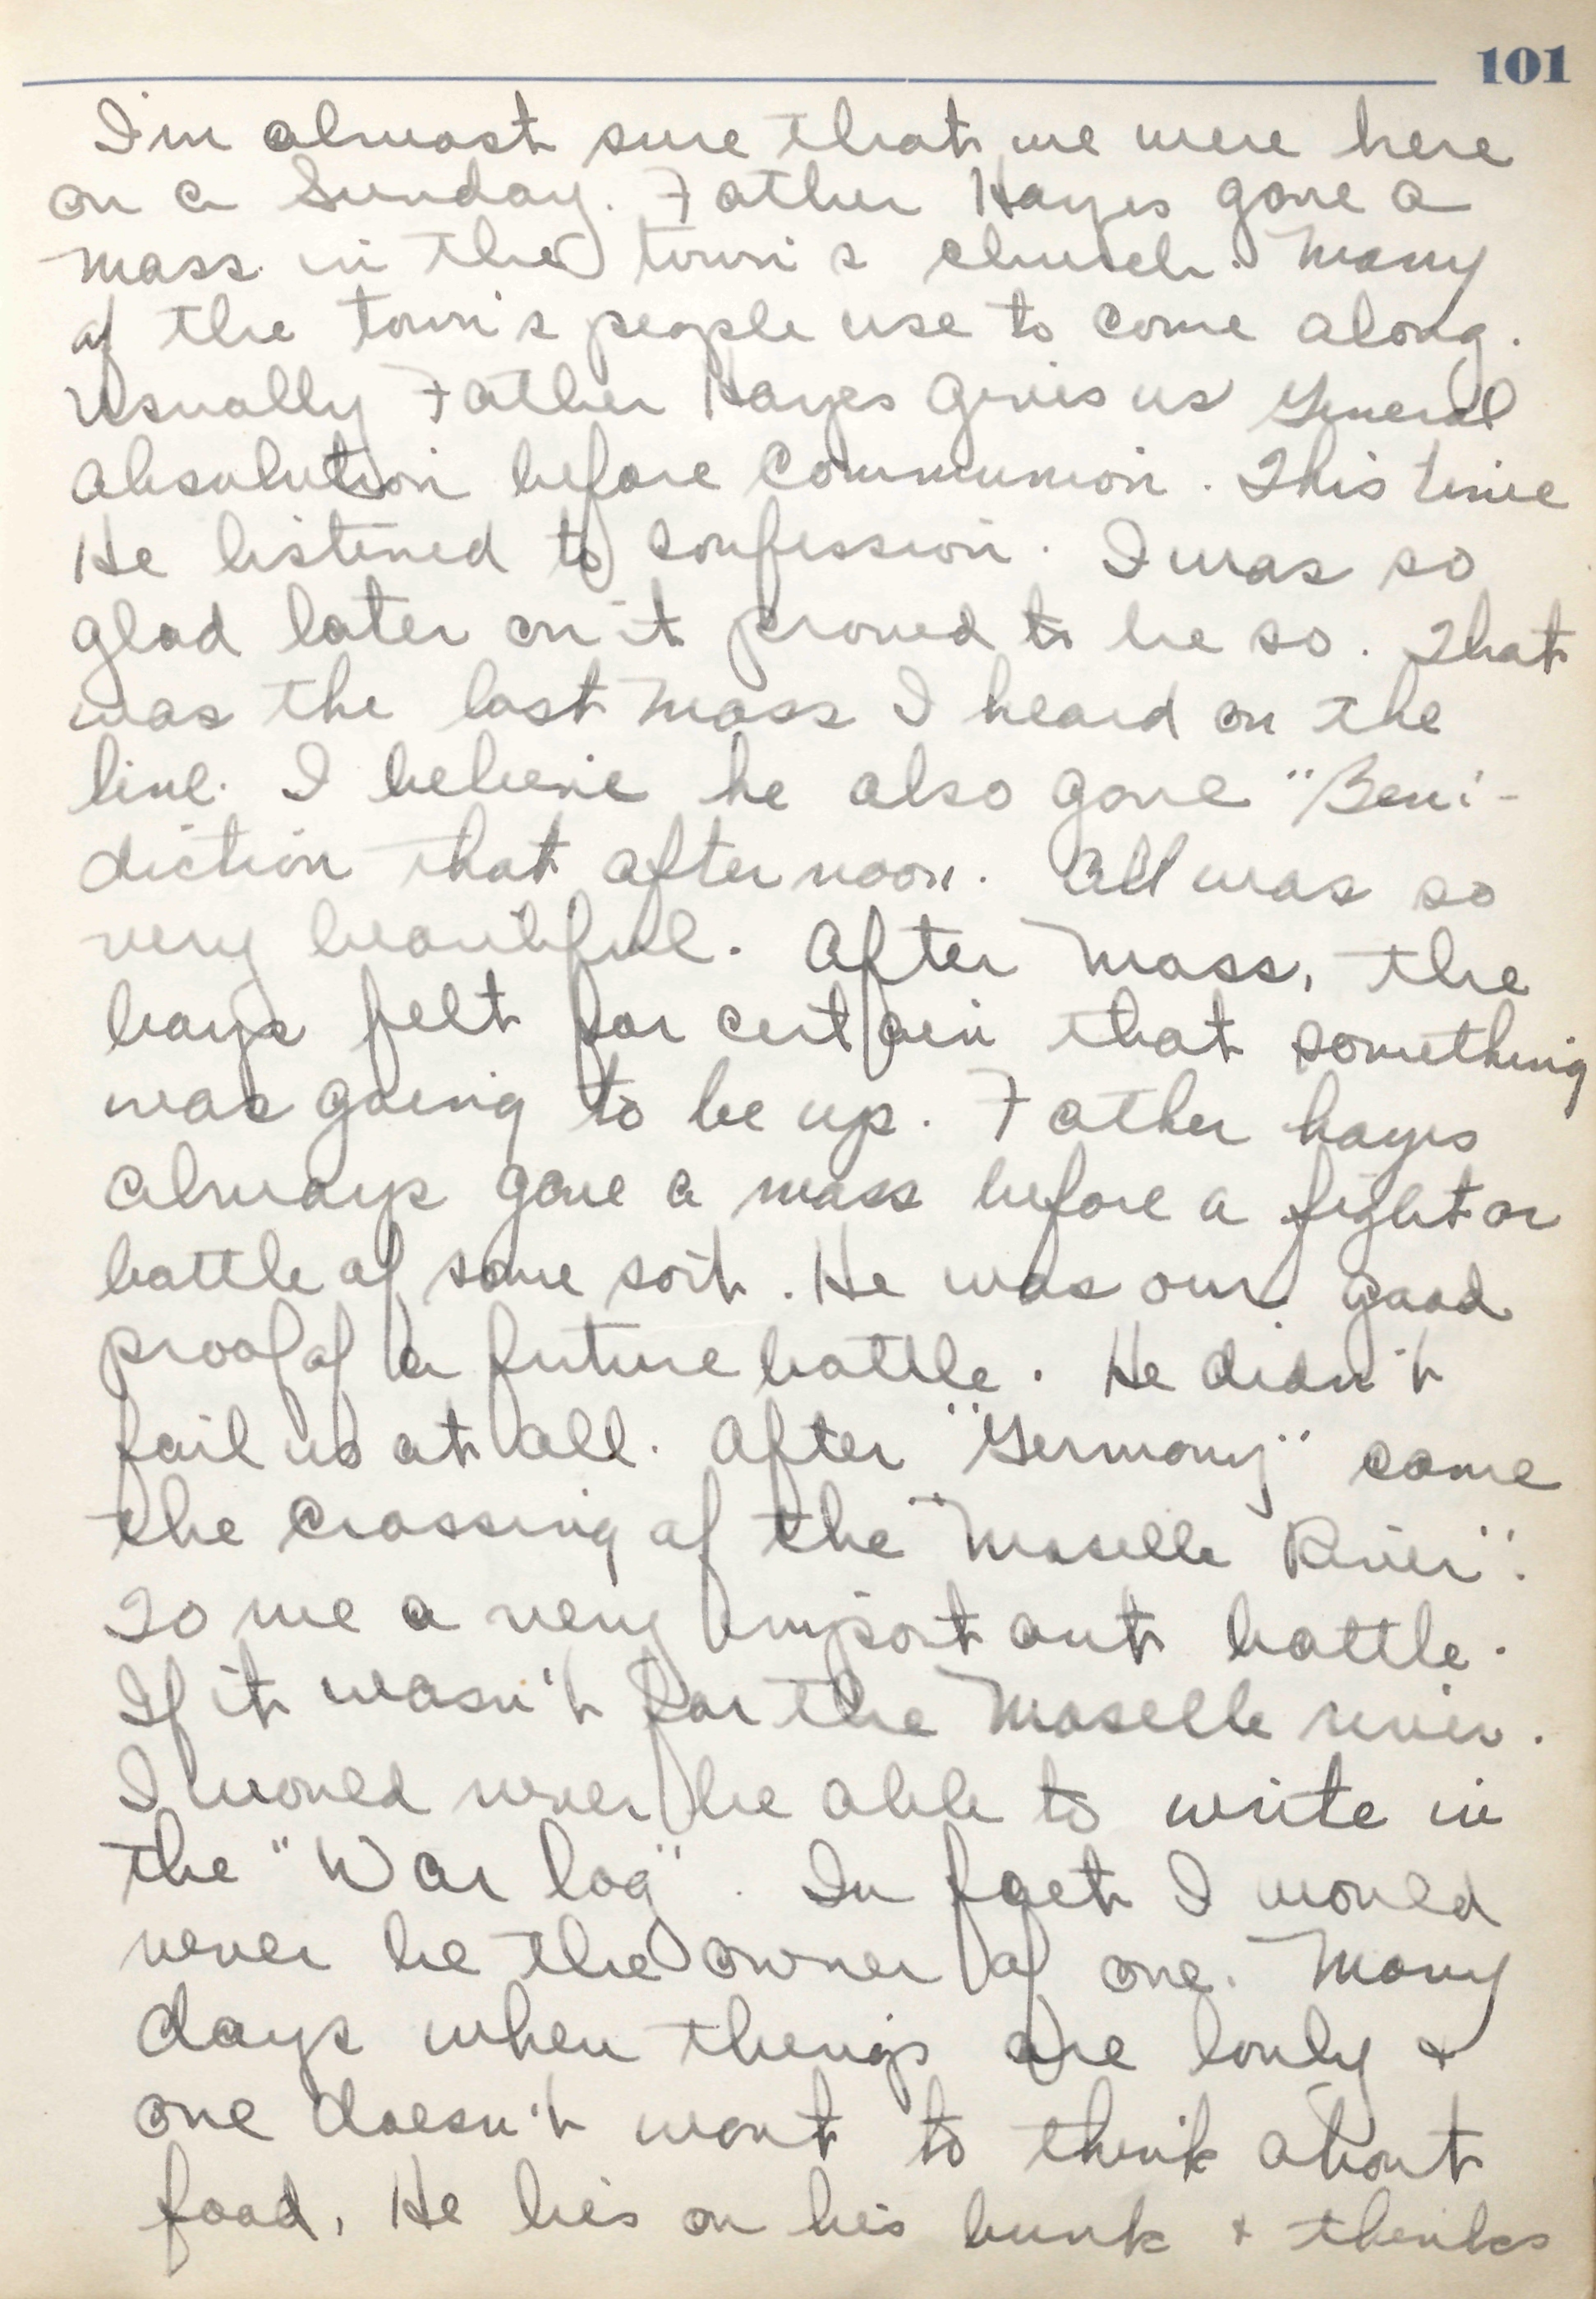 101
I'm almost sure that we were here
on a Sunday. Father Hayes gave a
mass in the town's church. Many
of the town's people use to come along.
Usually Father Hayes gives us General
Absolution before Communion. This time
He listened to confession. I was so
glad later on it proved to be so. That
was the last Mass I heard on the
line. I believe he also gave "Beni-
diction that afternoon. All was so
very beautiful. After Mass, the
boys felt for certain that something
was going to be up. Father hayes
always gave a mass before a fight or
battle of some sort. He was our good
proof of a future battle. He didn't
fail us at all. After "Germany" came
the crossing of the "Moselle River".
To me a very important battle.
If it wasn't for the Moselle river.
I would never be able to write in
the "War log". In fact I would
never be the owner of one. Many
days when things are lonly +
one doesn't want to think about
food, He lies on his bunk + thinks